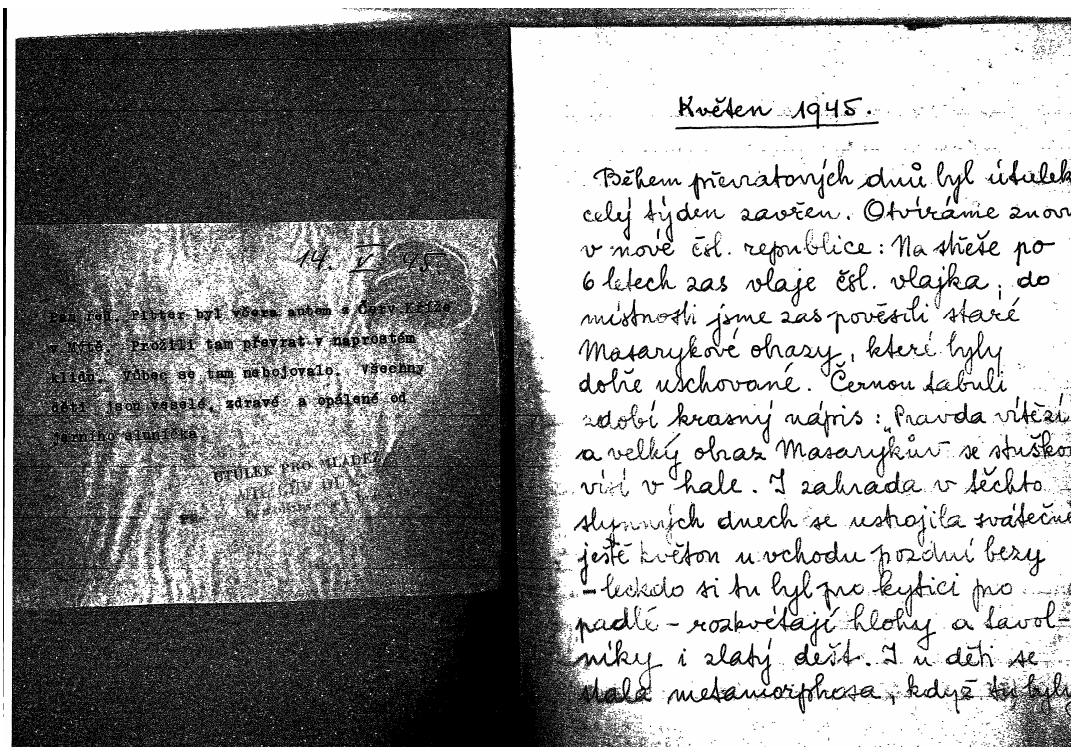 14. V 45.
Pan řed. Pitter byl včera autem s Červ.Kříže
v Mýtě. Prožili tam převrat v naprostém
klidu. Vůbec se tam nebojovalo. Všechny
děti jsou veselé, zdravé a opálené od
jarního sluníčka.
ÚTULEK PRO MLÁDEŽ
MILÍČŮV DŮM
Květen 1945.
Během převratových dnů byl útulek
celý týden zavřen. Otvíráme znovu
v nové čsl. republice: Na střeše po
6 letech zas vlaje čsl. vlajka, do
místnosti jsme zas pověsili staré
Masarykové obrazy, které byly
dobře uschované. Černou tabuli
zdobí krasný nápis: „Pravda vítězí
a velký obraz Masarykův se stuškou
visí v hale. I zahrada v těchto
slynných dnech se ustrojila svátečně
ještě květon u vchodu pozdní bezy
- leckdo si tu byl pro kytici pro
padlé - rozkvétají hlohy a tavol-
níky i zlatý dešt. I u děti se
stala metamorphosa, když tu byly